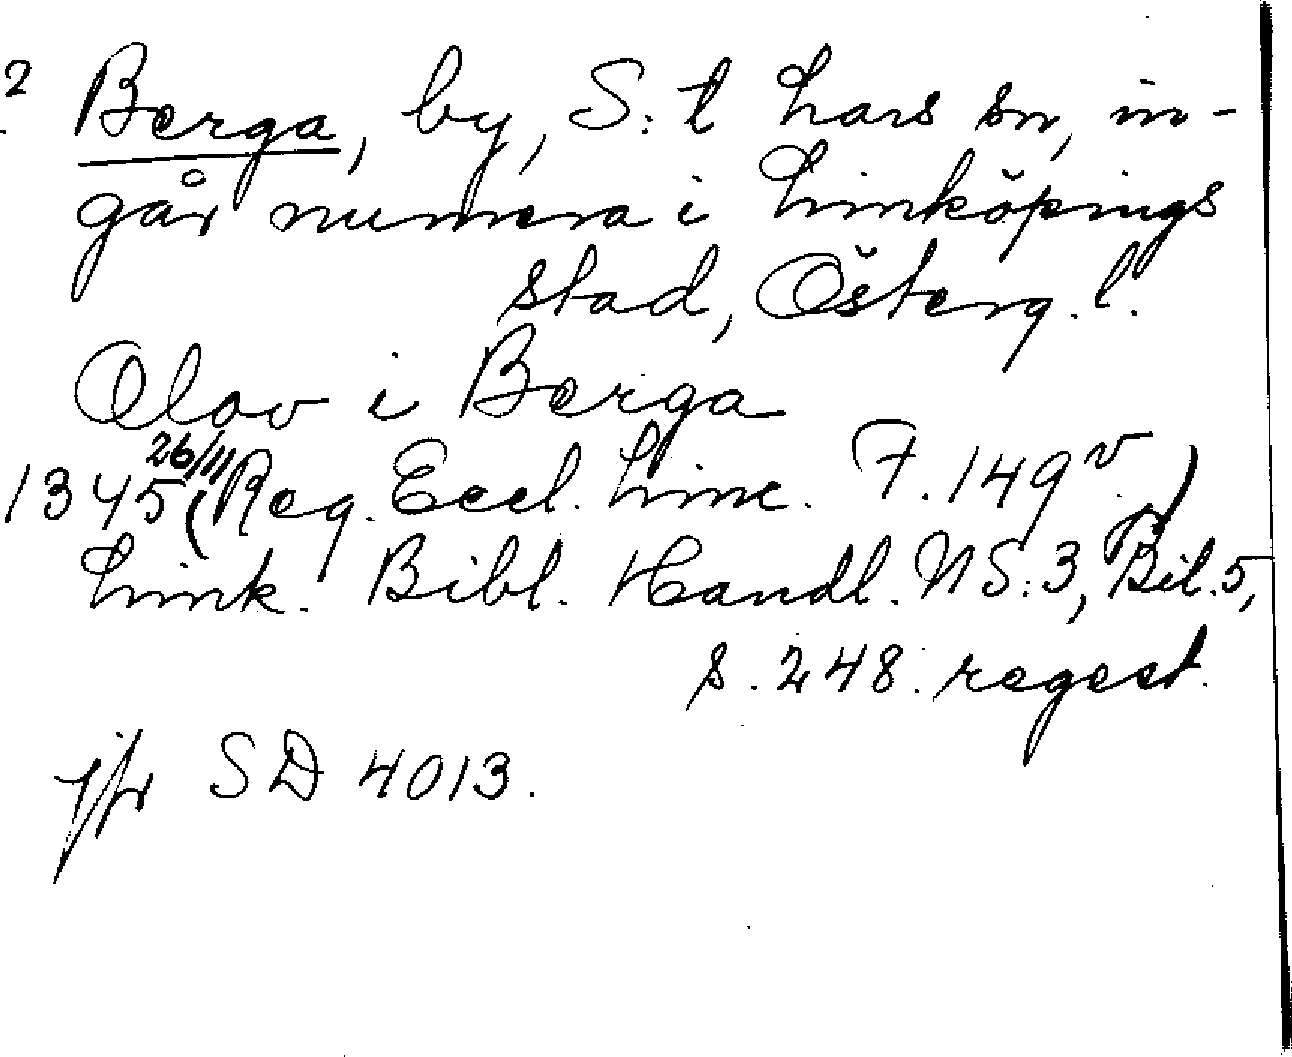 2 Berga, by, S:t Lars sn, in-
går numera i Linköpings
stad, Österg. l.
Olov i Berga
1345 26/11 (Reg. Eccl. Linc. F. 149v.)
Link. Bibl. Handl. NS:3, Bil. 5,
s. 248. regest.
jfr SD 4013.